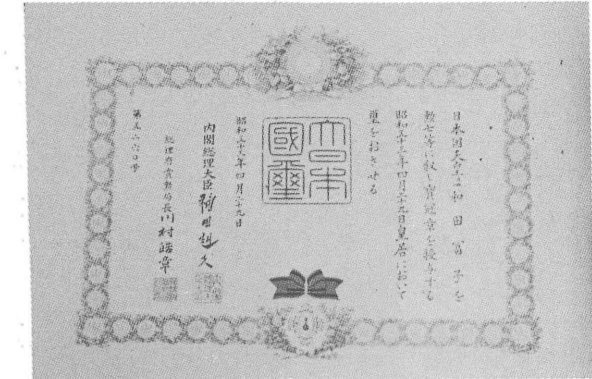 日本国天皇は和田富子を
勲七等に叙し宝冠章を授与する
昭和 年四月二十九日皇居において
璽をおさせる
大日本
國璽
昭和 年四月二十九日
内閣総理大臣 福田赳夫
総理府賞勲局長 川村皓章